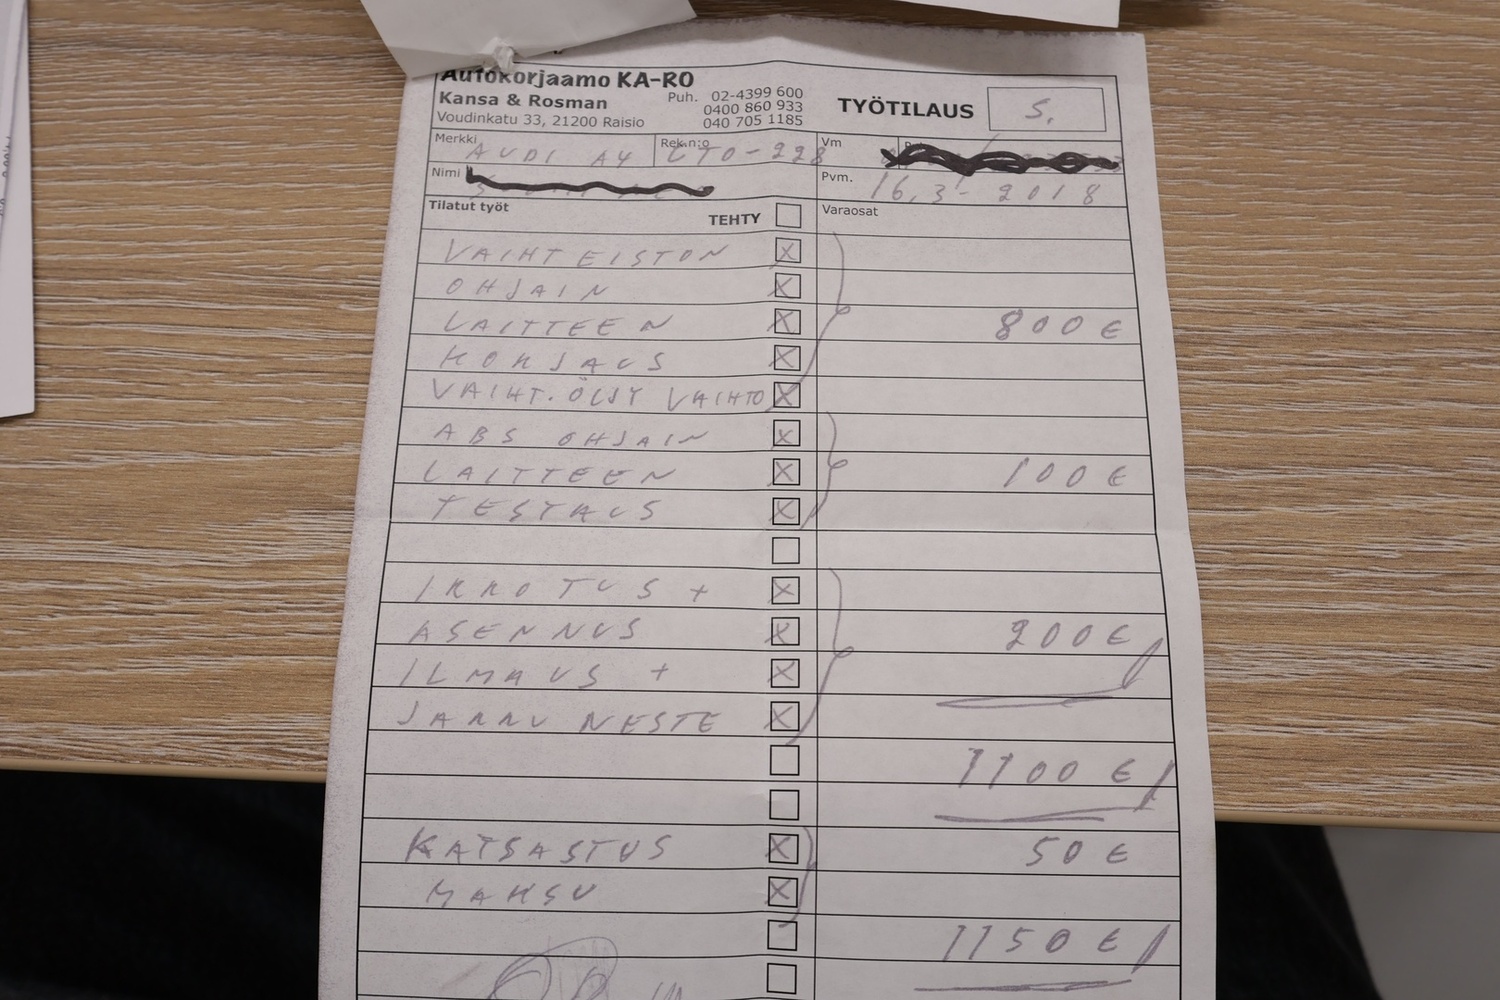 Autokorjaamo KA-RO
Kansa & Rosman
Voudinkatu 33, 21200 Raisio
Puh. 02-4399 600
0400 860 933
040 705 1185
TYÖTILAUS S.
Merkki AUDI A4
Rek.n:o CTO-228
Vm
Nimi
Pvm. 16.3-2018
Tilatut työt TEHTY
Varaosat
VAIHTEISTON
OHJAIN
LAITTEEN 800€
KORJAUS
VAIHT.ÖLJY VAIHTO
ABS OHJAIN
LAITTEEN 100€
TESTAUS
IRROTUS +
ASENNUS 200€
ILMAUS +
JARRU NESTE
1100€
KATSASTUS 50€
MAKSU
1150€